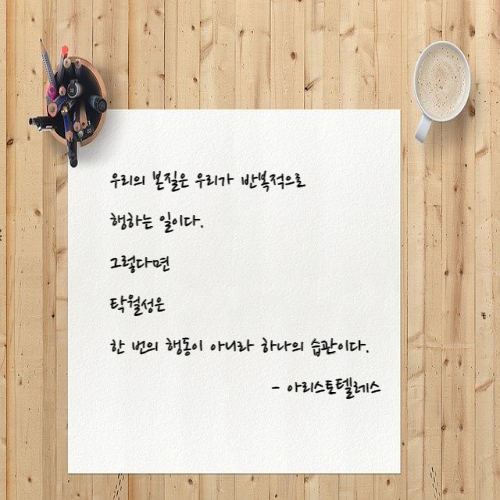 우리의 본질은 우리가 반복적으로
행하는 일이다.
그렇다면
탁월성은
한 번의 행동이 아니라 하나의 습관이다.
- 아리스토텔레스